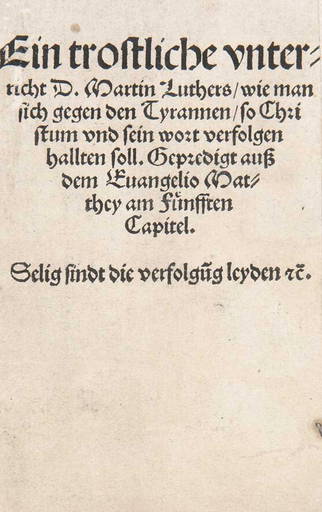 Ein trostliche vnter⸗
richt D. Martin Luthers/ wie man
sich gegen den Tyrannen/ so Chri
stum vnd sein wort verfolgen
hallten soll. Gepredigt auß
dem Euangelio Mat⸗
they am Fünfften
Capitel.
Selig sindt die verfolgũg leyden ꝛc̃.